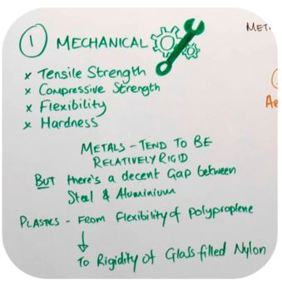 ① MECHANICAL
x Tensile Strength
x Compressive Strength
x Flexibility
x Hardness
METALS - TEND TO BE
RELATIVELY RIGID
BUT there's a decent Gap between
Steel & Aluminium
PLASTICS - From Flexibility of Polypropylene
To Rigidity of Glass filled Nylon